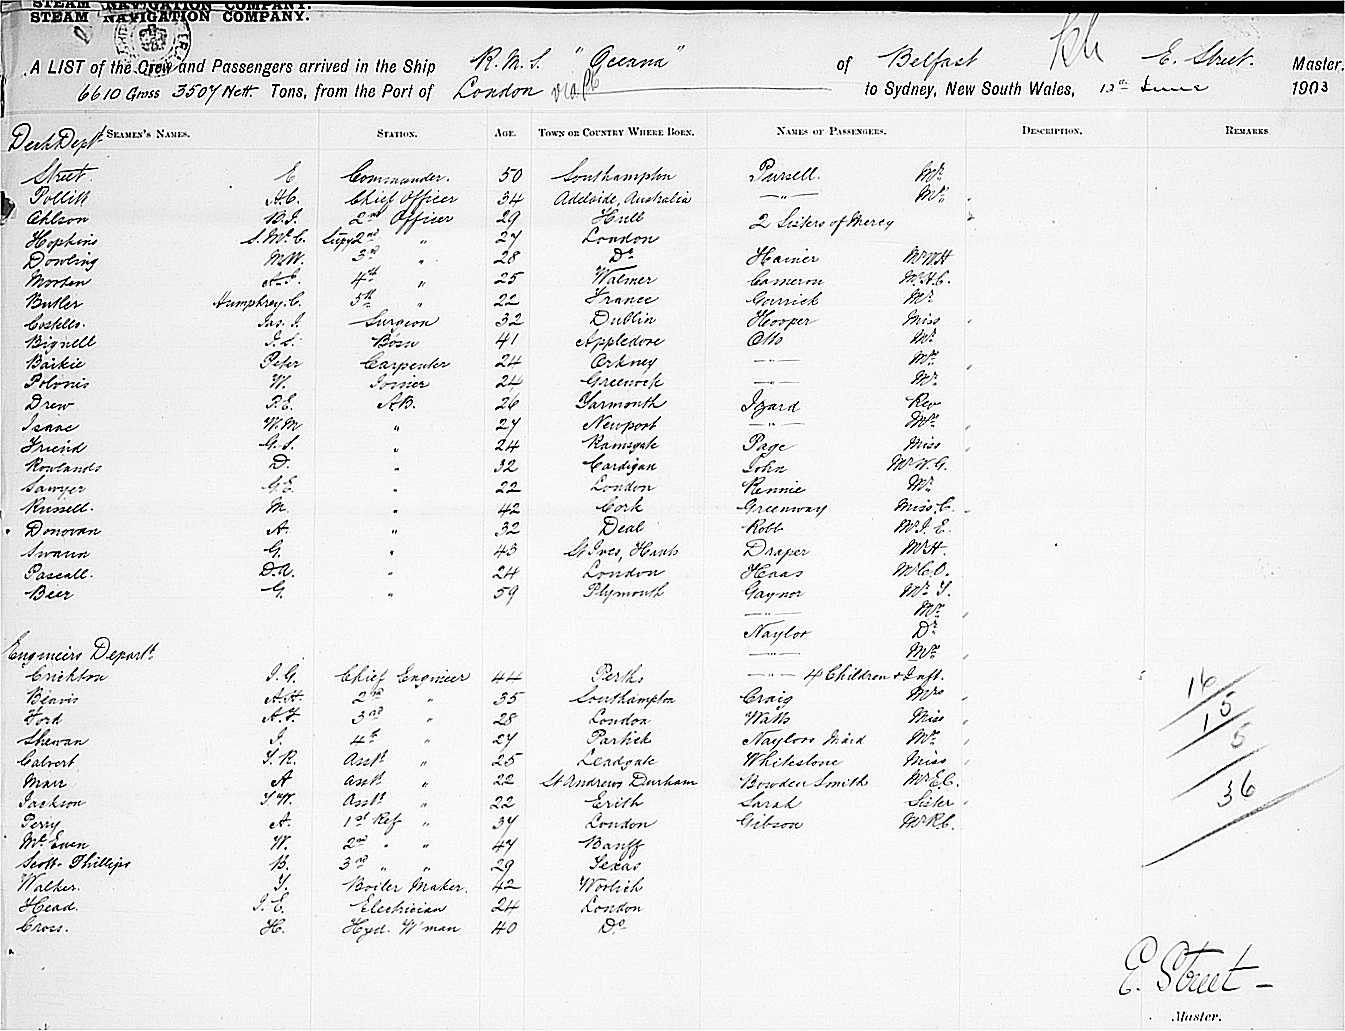 STEAM NAVIGATION COMPANY.
STEAM NAVIGATION COMPANY.
A LIST of the Crew and Passengers arrived in the Ship R.M.S. "Oceana" of Belfast E. Street. Master.
6610 Gross 3507 Nett Tons, from the Port of London via to Sydney, New South Wales, 12th June 1903
Deck Dept. SEAMEN'S NAMES. STATION. AGE. TOWN OR COUNTRY WHERE BORN. NAMES OF PASSENGERS. DESCRIPTION. REMARKS
Street E Commander. 50 Southampton Pursell. Mr.
Pollitt H.C. Chief Officer 34 Adelaide, Australia —"— Mrs.
Ohlson 2nd Officer 29 Hull 2 Sisters of Mercy
Hopkins S. Mc. C. Supy 2nd " 27 London
Dowling M.W. 3rd " 28 Do. Hainer Mr W.H
Morten A.J. 4th " 25 Walmer Cameron Mr. H.C.
Butler Humphrey. C. 5th " 22 France Garrick Mr
Costello. Jas. J. Surgeon 32 Dublin Hooper Miss
Bignell J.S. Bosn 41 Appledore Otto Mr.
Baikie Peter Carpenter 24 Orkney —"— Mrs.
Polonis W. Joiner 24 Greenock —"— Mr.
Drew P.E. A.B. 26 Yarmouth Izard Rev
Isaac W.M " 27 Newport —"— Mrs.
Friend G.S. " 24 Ramsgate Page Miss
Rowlands D. " 32 Cardigan John Mr W.G.
Sawyer G.E. " 22 London Rennie Mr.
Russell. M. " 42 Cork Greenway Miss. C.
Donovan A. " 32 Deal Robb Mr J. E.
Swann G. " 43 St Ives, Hants Draper Mr H.
Pascall. D.A. " 24 London Haas Mr C.O.
Beer G. " 59 Plymouth Gaynor Mr. T.
—"— Mrs.
Naylor Dr.
Engineers Departt. —"— Mrs.
Crichton J.G. Chief Engineer 44 Perths —"— 4 Children & Inft.
Beavis A.H. 2nd " 35 Southampton Craig Mrs 16
Ford A.F. 3rd " 28 London Watts Miss 15
Shewan J. 4th " 27 Partick Naylors Maid 5
Calvert T.R. Asst. " 25 Leadgate Whitestone Miss
Marr A Asst. " 22 St Andrews Durham Bowden Smith Mr E.C. 36
Jackson T.W. Asst. " 22 Erith Sarah Sister
Perry A. 1st Ref " 37 London Gibson Mr R.C.
McEwen W. 2nd " " 47 Banff
Scott-Phillips B. 3rd " " 29 Texas
Walker. T. Boiler Maker. 42 Woolich
Head. J.E. Electrician 24 London
Cross. H. Hyd. W'man 40 Do.
E. Street
Master.